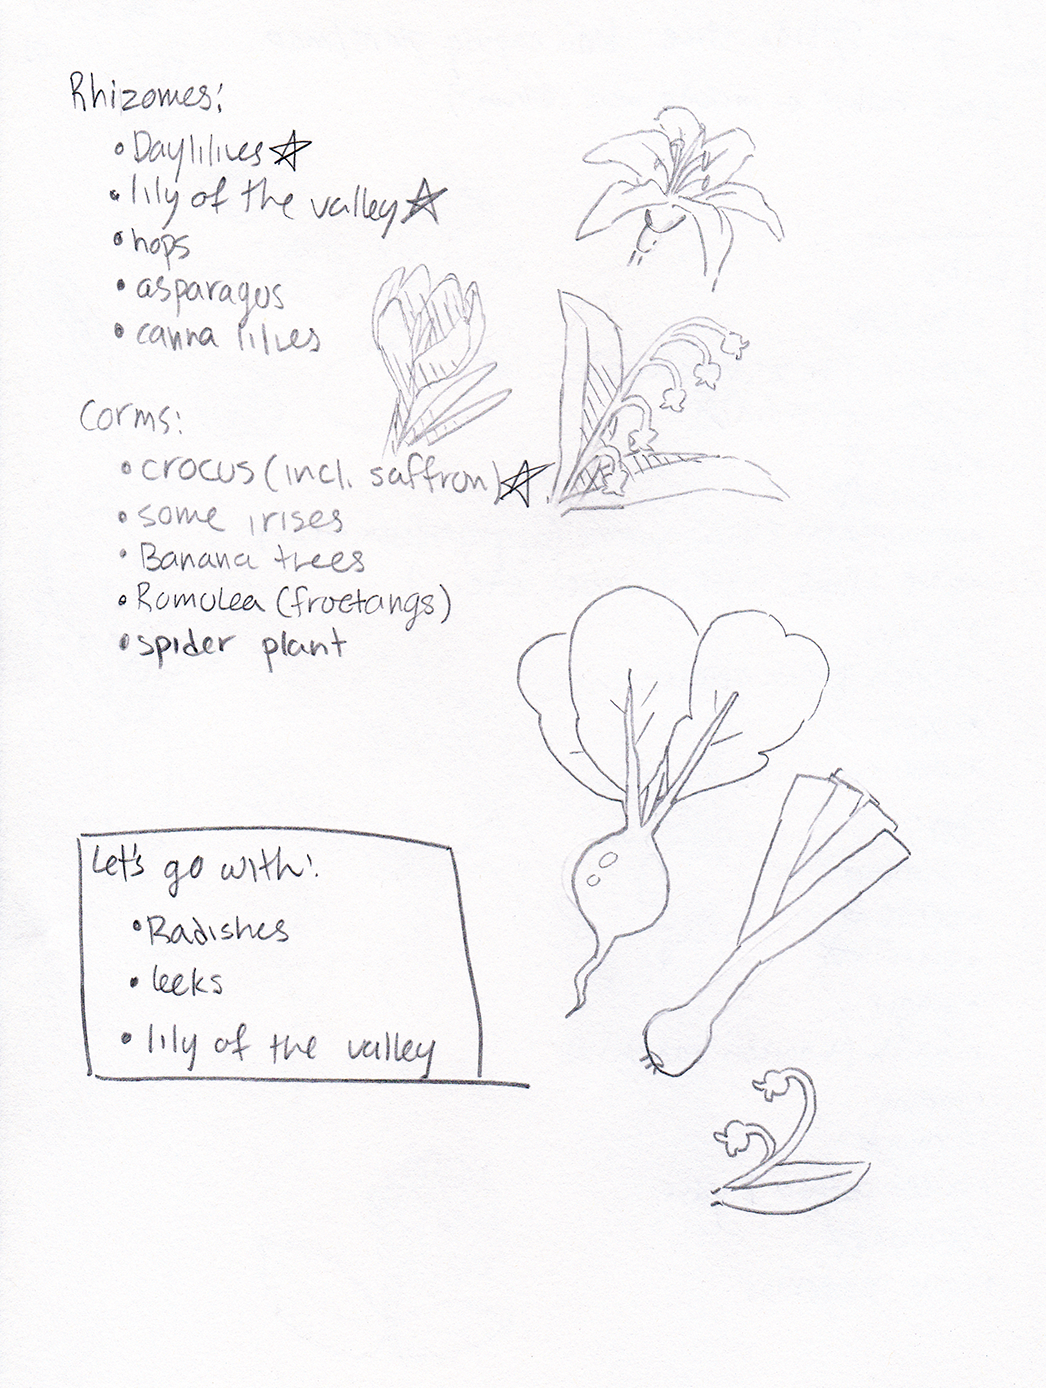 Rhizomes:
• Daylilies ☆
• lily of the valley ☆
• hops
• asparagus
• canna lilies
Corms:
• crocus (incl. saffron) ☆
• some irises
• Banana trees
• Romulea (froetangs)
• spider plant
Let's go with:
• Radishes
• leeks
• lily of the valley